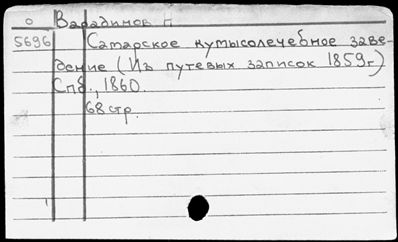 о Варадинов Н
5696 Самарское кумысолечебное заве-
дение (Из путевых записок 1859г.)
Спб., 1860.
68 стр.